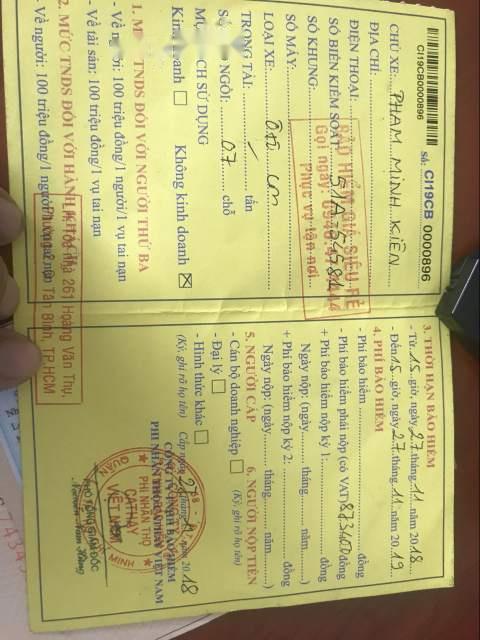 CI19CB0000896
Số: CI19CB 0000896
CHỦ XE: PHAM MINH KIÊN
ĐỊA CHỈ:
ĐIỆN THOẠI:
SỐ BIỂN KIỂM SOÁT: 51A 54981
SỐ KHUNG:
SỐ MÁY:
LOẠI XE: ÔTÔ con
TRỌNG TẢI: / tấn
SỐ CHỖ NGỒI: 07 chỗ
MỤC ĐÍCH SỬ DỤNG
Kinh doanh ☐ Không kinh doanh ☒
1. MỨC TNDS ĐỐI VỚI NGƯỜI THỨ BA
- Về người: 100 triệu đồng/1 người/1 vụ tai nạn
- Về tài sản: 100 triệu đồng/1 vụ tai nạn
2. MỨC TNDS ĐỐI VỚI HÀNH KHÁCH
- Về người: 100 triệu đồng/1 người/
BẢO HIỂM GIÁ SIÊU RẺ
Gọi ngay:
Phục vụ tận nơi
Nhà 261 Hoàng Văn Thụ,
Tân Bình, TP.HCM
3. THỜI HẠN BẢO HIỂM
- Từ 15 giờ, ngày 27 tháng 11 năm 2018
- Đến 15 giờ, ngày 27 tháng 11 năm 2019
4. PHÍ BẢO HIỂM
- Phí bảo hiểm đồng
- Phí bảo hiểm phải nộp (có VAT) 873400 đồng
+ Phí bảo hiểm nộp kỳ 1: đồng
Ngày nộp: (ngày tháng năm )
+ Phí bảo hiểm nộp kỳ 2: đồng
Ngày nộp: (ngày tháng năm )
5. NGƯỜI CẤP 6. NGƯỜI NỘP TIỀN
- Cán bộ doanh nghiệp ☐ (Ký, ghi rõ họ tên)
- Đại lý ☐
- Hình thức khác ☐
(Ký, ghi rõ họ tên) Cấp ngày 27 tháng 11 năm 2018
CÔNG TY TNHH BẢO HIỂM
PHI NHÂN THỌ CATHAY VIỆT NAM
PHI NHÂN THỌ
CATHAY
VIỆT NAM
PHÓ TỔNG GIÁM ĐỐC